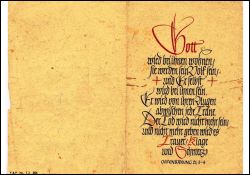 Gott
wird bei ihnen wohnen/
sie werden sein Volk sein/
und Er selbst
wird bei ihnen sein.
Er wird von ihren Augen
abwischen jede Träne.
Der Tod wird nicht mehr sein/
und nicht mehr geben wird es
Trauer/Klage
und Schmerz
OFFENBARUNG 21, 3-4